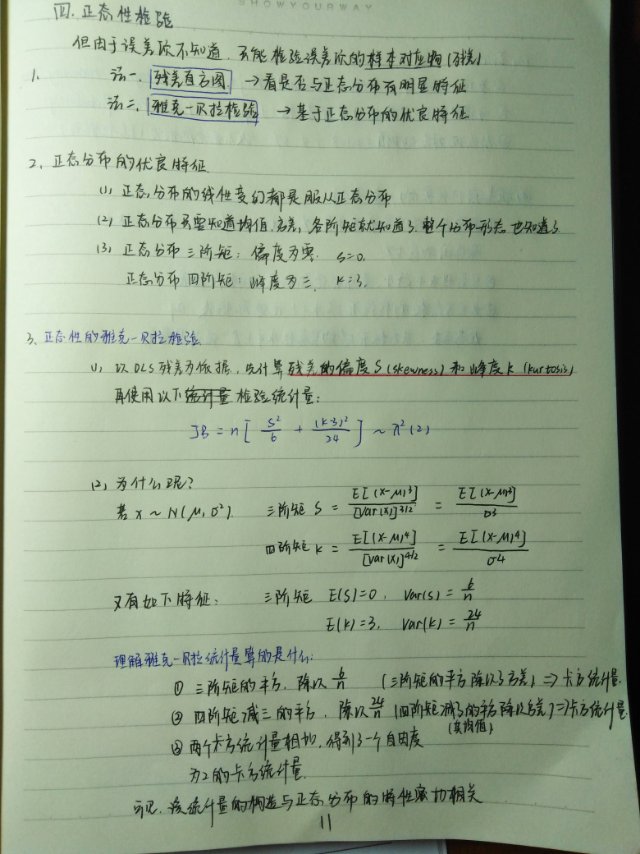 SHOWYOURWAY
四. 正态性检验
但由于误差项不知道, 只能检验误差项的样本对应物(残差)
1. 法一. 残差直方图 → 看是否与正态分布有明显特征
法二. 雅克-贝拉检验 → 基于正态分布的优良特征
2. 正态分布的优良特征
(1) 正态分布的线性变幻都是服从正态分布
(2) 正态分布只要知道均值.方差, 各阶矩就知道了, 整个分布形态也知道了
(3) 正态分布三阶矩: 偏度为零. S=0.
正态分布四阶矩: 峰度为三. K=3.
3. 正态性的雅克-贝拉检验
(1) 以OLS残差为依据, 先计算残差的偏度S(skewness)和峰度K(kurtosis)
再使用以下统计量 检验统计量:
JB = n[ S²/6 + (K-3)²/24 ] ~ χ²(2)
(2) 为什么呢?
若 x ~ N(μ, σ²). 三阶矩 S = E[(x-μ)³]/[var(x)]^3/2 = E[(x-μ)³]/σ3
四阶矩 K = E[(x-μ)⁴]/[var(x)]^4/2 = E[(x-μ)⁴]/σ4
又有如下特征: 三阶矩 E(S)=0, var(s) = 6/n
E(K)=3, var(k) = 24/n
理解雅克-贝拉统计量算的是什么:
① 三阶矩的平方, 除以 6/n (三阶矩的平方除以方差) ⇒ 卡方统计量.
② 四阶矩减三的平方, 除以 24/n (四阶矩减3的平方除以方差) ⇒ 卡方统计量
(其均值)
③ 两个卡方统计量相加, 得到了一个自由度
为2的卡方统计量.
可见, 该统计量的构造与正态分布的特性密切相关
11